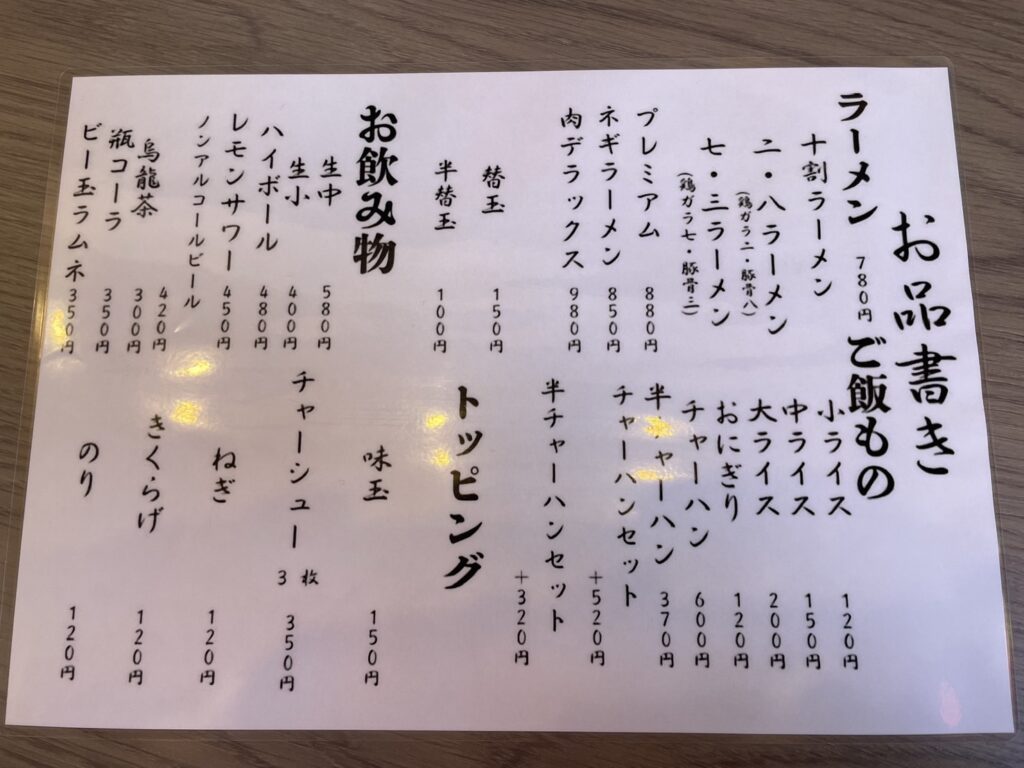 お品書き
ラーメン 780円
十割ラーメン
二・八ラーメン
(鶏ガラ二・豚骨八)
七・三ラーメン
(鶏ガラ七・豚骨三)
プレミアム 880円
ネギラーメン 850円
肉デラックス 980円
替玉 150円
半替玉 100円
ご飯もの
小ライス 120円
中ライス 150円
大ライス 200円
おにぎり 120円
チャーハン 600円
半チャーハン 370円
チャーハンセット +520円
半チャーハンセット +320円
お飲み物
生中 580円
生小 400円
ハイボール 480円
レモンサワー 450円
ノンアルコールビール 420円
烏龍茶 300円
瓶コーラ 350円
ビー玉ラムネ 350円
トッピング
味玉 150円
チャーシュー 3枚 350円
ねぎ 120円
きくらげ 120円
のり 120円